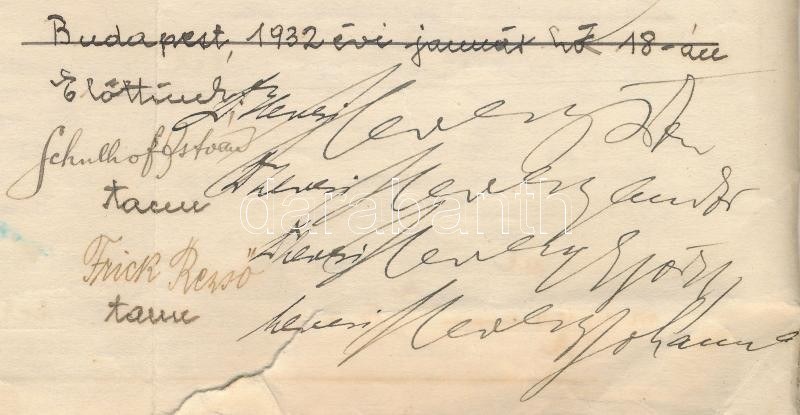 Budapest, 1932 évi január hó 18-án
Előttünk:
Schulhof István
tanu
Frick Rezső
tanu
Hevesi Hevesy
Hevesi Hevesy Andor
Hevesi Hevesy György
hevesi Hevesy Johanna
darabanth